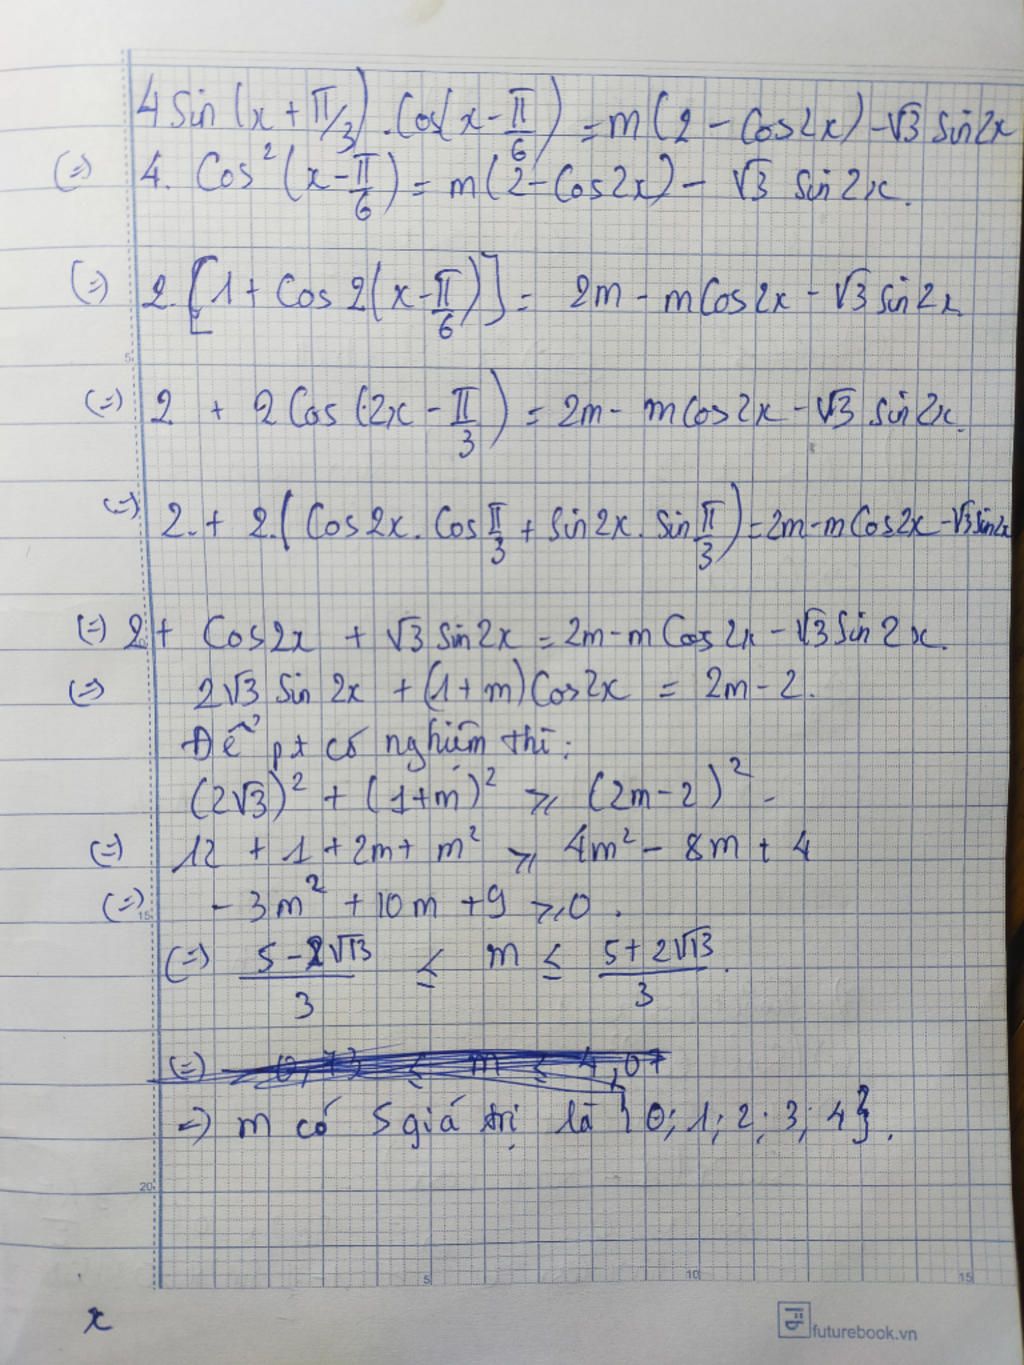 4 Sin(x + π/3) . Cos(x - π/6) = m(2 - Cos2x) - √3 Sin2x
(=) 4. Cos²(x - π/6) = m(2 - Cos2x) - √3 Sin2x.
(=) 2. [1 + Cos 2(x - π/6)] = 2m - mCos2x - √3 Sin2x
5
(=) 2 + 2Cos(2x - π/3) = 2m - mCos2x - √3 Sin2x.
(=) 2. + 2.(Cos2x. Cos π/3 + Sin2x. Sin π/3) = 2m - mCos2x - √3 Sin2x
(=) 2 + Cos2x + √3 Sin2x = 2m - m Cos2x - √3 Sin2x.
(=) 2√3 Sin 2x + (1+m)Cos2x = 2m - 2.
Để pt có nghiệm thì:
(2√3)² + (1+m)² ⩾ (2m-2)² -
(=) 12 + 1 + 2m + m² ⩾ 4m² - 8m + 4
(=) - 3m² + 10m + 9 ⩾ 0.
15
(=) (5 - 2√13)/3 ≤ m ≤ (5 + 2√13)/3.
(=) 0,73 ≤ m ≤ 4,07
=) m có 5 giá trị là {0; 1; 2; 3; 4}.
20
5 10 15
x
futurebook.vn